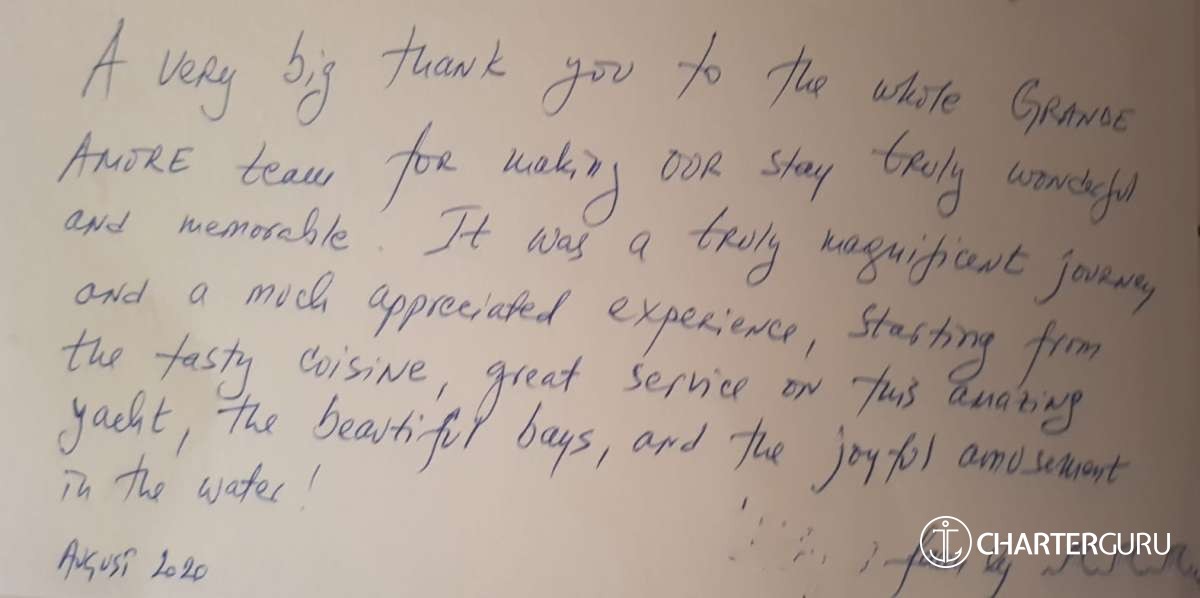 A very big thank you to the whole GRANDE
AMORE team for making our stay truly wonderful
and memorable. It was a truly magnificent journey
and a much appreciated experience, starting from
the tasty coisine, great service on this amazing
yacht, the beautiful bays, and the joyful amusement
in the water!
August 2020
family
CHARTERGURU